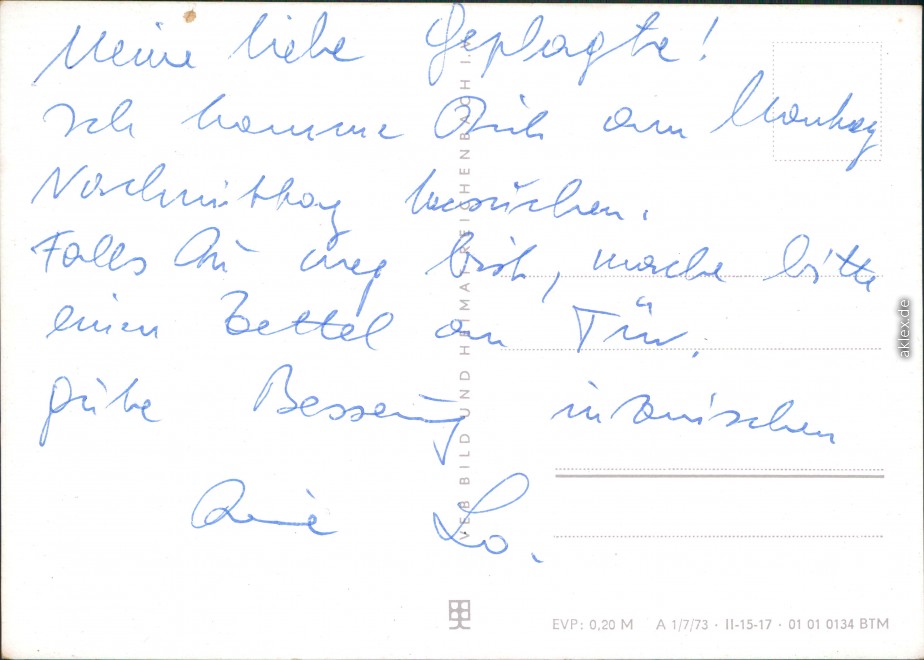 Meine liebe Geplagte!
Ich komme Dich am Montag
Nachmittag besuchen.
Falls Du weg bist, mache bitte
einen Zettel an Tür.
gute Besserung inzwischen
Deine Lo.
VEB BILD UND HEIMAT REICHENBACH I.V.
EVP: 0,20 M A 1/7/73 · II-15-17 · 01 01 0134 BTM
aklex.de